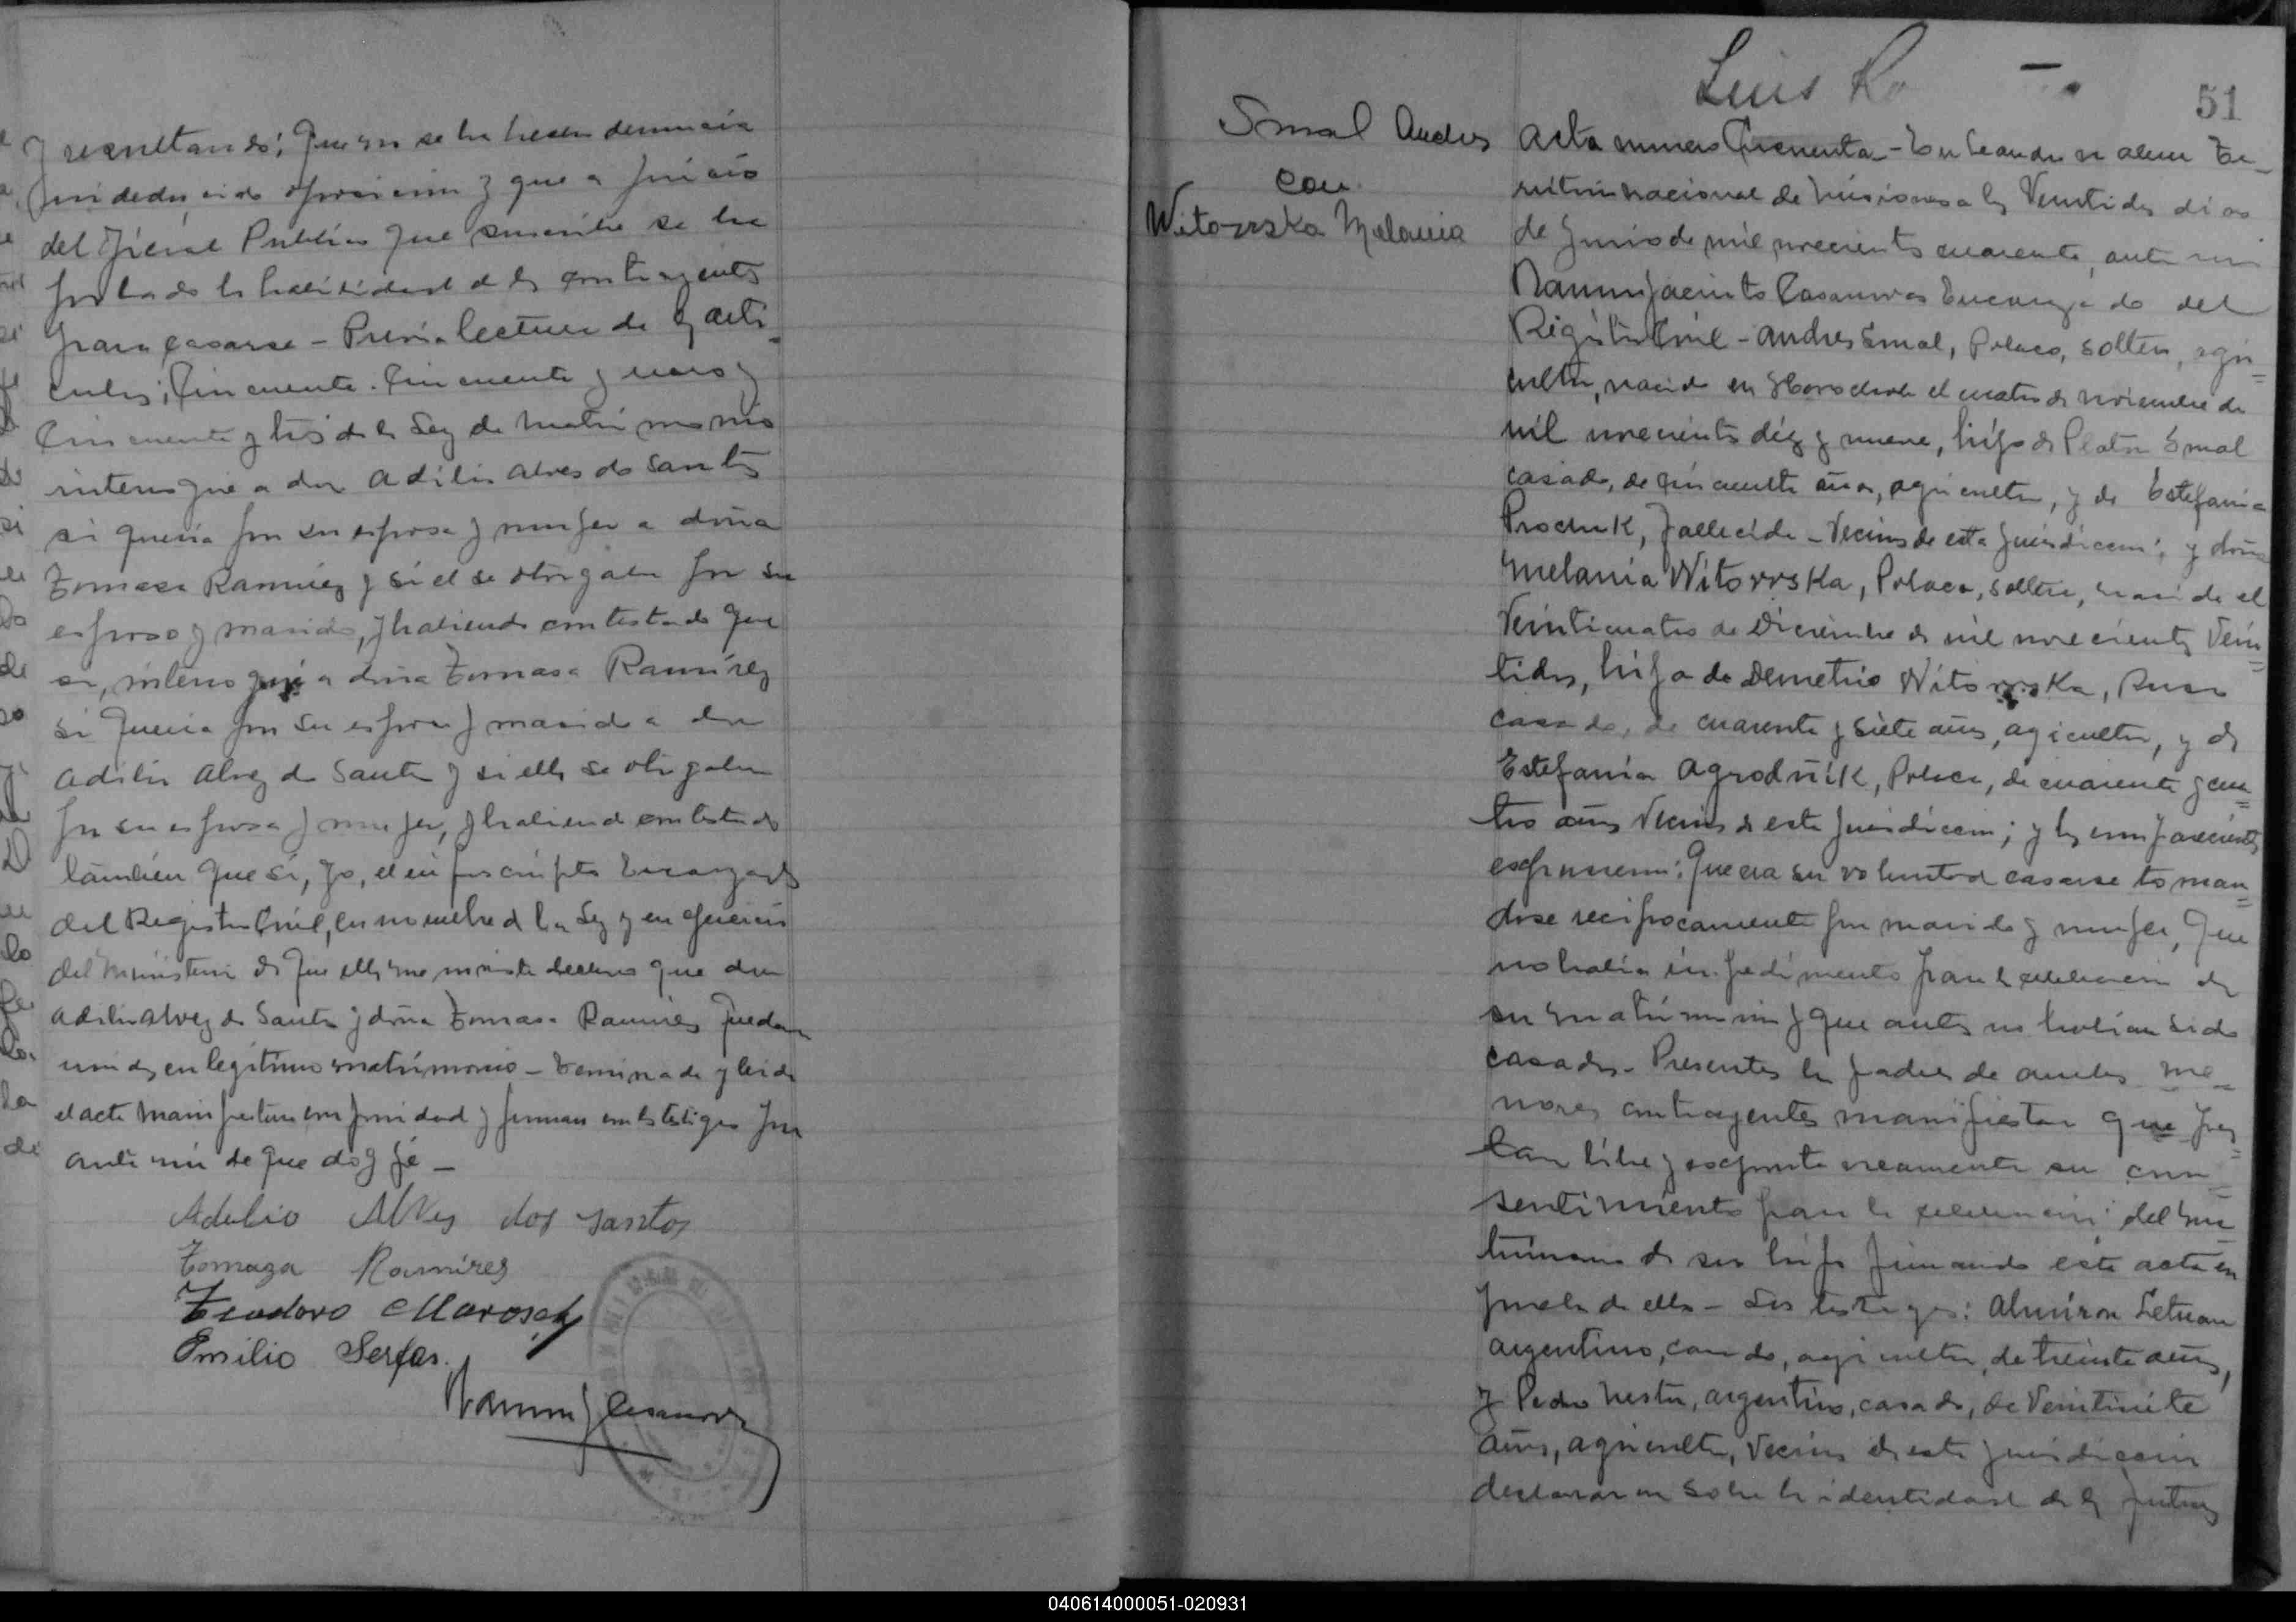 y resultando; Que no se ha hecho denuncia
ni deducido oposicion y que a juicio
del Oficial Publico que suscribe se ha
probado la habilidad de los contrayentes
para casarse - Previa lectura de los arti-
culos; Cincuenta. Cincuenta y uno y
Cincuenta y tres de la Ley de Matrimonio
interrogué a don Adilio Alves do Santos
si queria por su esposa y mujer a doña
Tomasa Ramirez y si el se obligaba por su
esposo y marido, y habiendo contestado que
si, interrogué a doña Tomasa Ramirez
si queria por su esposo y marido a don
Adilio Alvez do Santos y si ella se obligaba
por su esposa y mujer, y habiendo contestado
también que si, yo, el infrascripto Encargado
del Registro Civil, en nombre de la Ley y en ejercicio
del Ministerio de que ella me inviste declaro que don
Adilio Alvez do Santos y doña Tomasa Ramirez quedan
unidos en legitimo matrimonio - Terminada y leida
el acta manifestaron conformidad y firman con los testigos por
ante mi de que doy fé -
Adelio Alves dos santos
Tomaza Ramires
Teodoro
Emilio
Ramon J Casanova
Luis
51
Smal Andres
con
Witowska Melania
Acta numero Cincuenta - En Leandro N Alem Te-
rritorio nacional de Misiones a los Veintidos dias
de Junio de mil novecientos cuarenta, ante mi
Ramon Jacinto Casanovas Encargado del
Registro Civil - Andres Smal, Polaco, soltero, agri-
cultor, nacido en el cuatro de noviembre de
mil novecientos diez y nueve, hijo de Platon Smal
casado, de cincuenta años, agricultor, y de Estefania
Prochuk, fallecida - Vecinos de esta jurisdiccion; y doña
Melania Witowska, Polaca, soltera, nacida el
Veinticuatro de Diciembre de mil novecientos Vein-
tidos, hija de Demetrio Witowska, Ruso
casado, de cuarenta y siete años, agricultor, y de
Estefania Agrodnik, Polaca, de cuarenta y cua-
tro años Vecinos de esta jurisdiccion; y los comparecientes
expusieron: Que era su voluntad casarse toman-
dose reciprocamente por marido y mujer, que
no habia impedimento para la celebracion de
su matrimonio y que antes no habian sido
casados - Presentes los padres de ambos me-
nores contrayentes manifiestan que pres-
tan libre y espontaneamente su con-
sentimiento para la celebracion del ma-
trimonio de sus hijos firmando este acta en
prueba de ello - Los testigos: Almiron
argentino, casado, agricultor, de treinta años,
y Pedro argentino, casado, de Veintisiete
años, agricultor, Vecinos de esta jurisdiccion
declararon sobre la identidad de los futuros
040614000051-020931